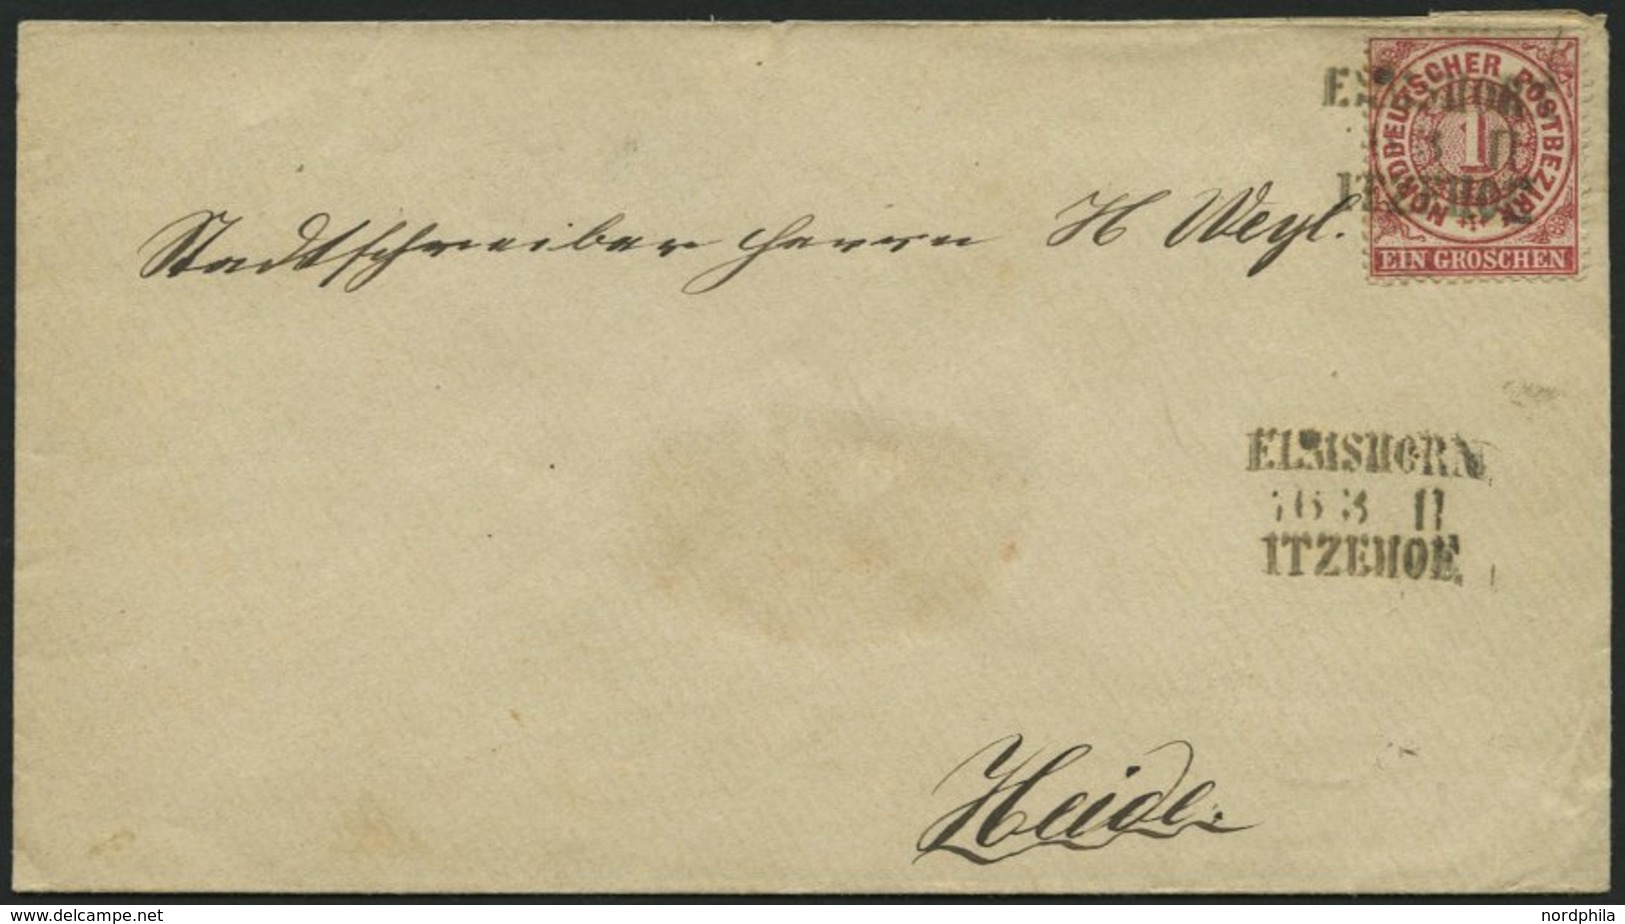 NORDDEUTSCHER POSTBEZIRK
1
EIN GROSCHEN
Stadtschreiber Herrn H Weyl.
ELMSHORN
3 II
ITZEHOE
ELMSHORN
16 3 II
ITZEHOE.
Heide.
www.delcampe.net
nordphila